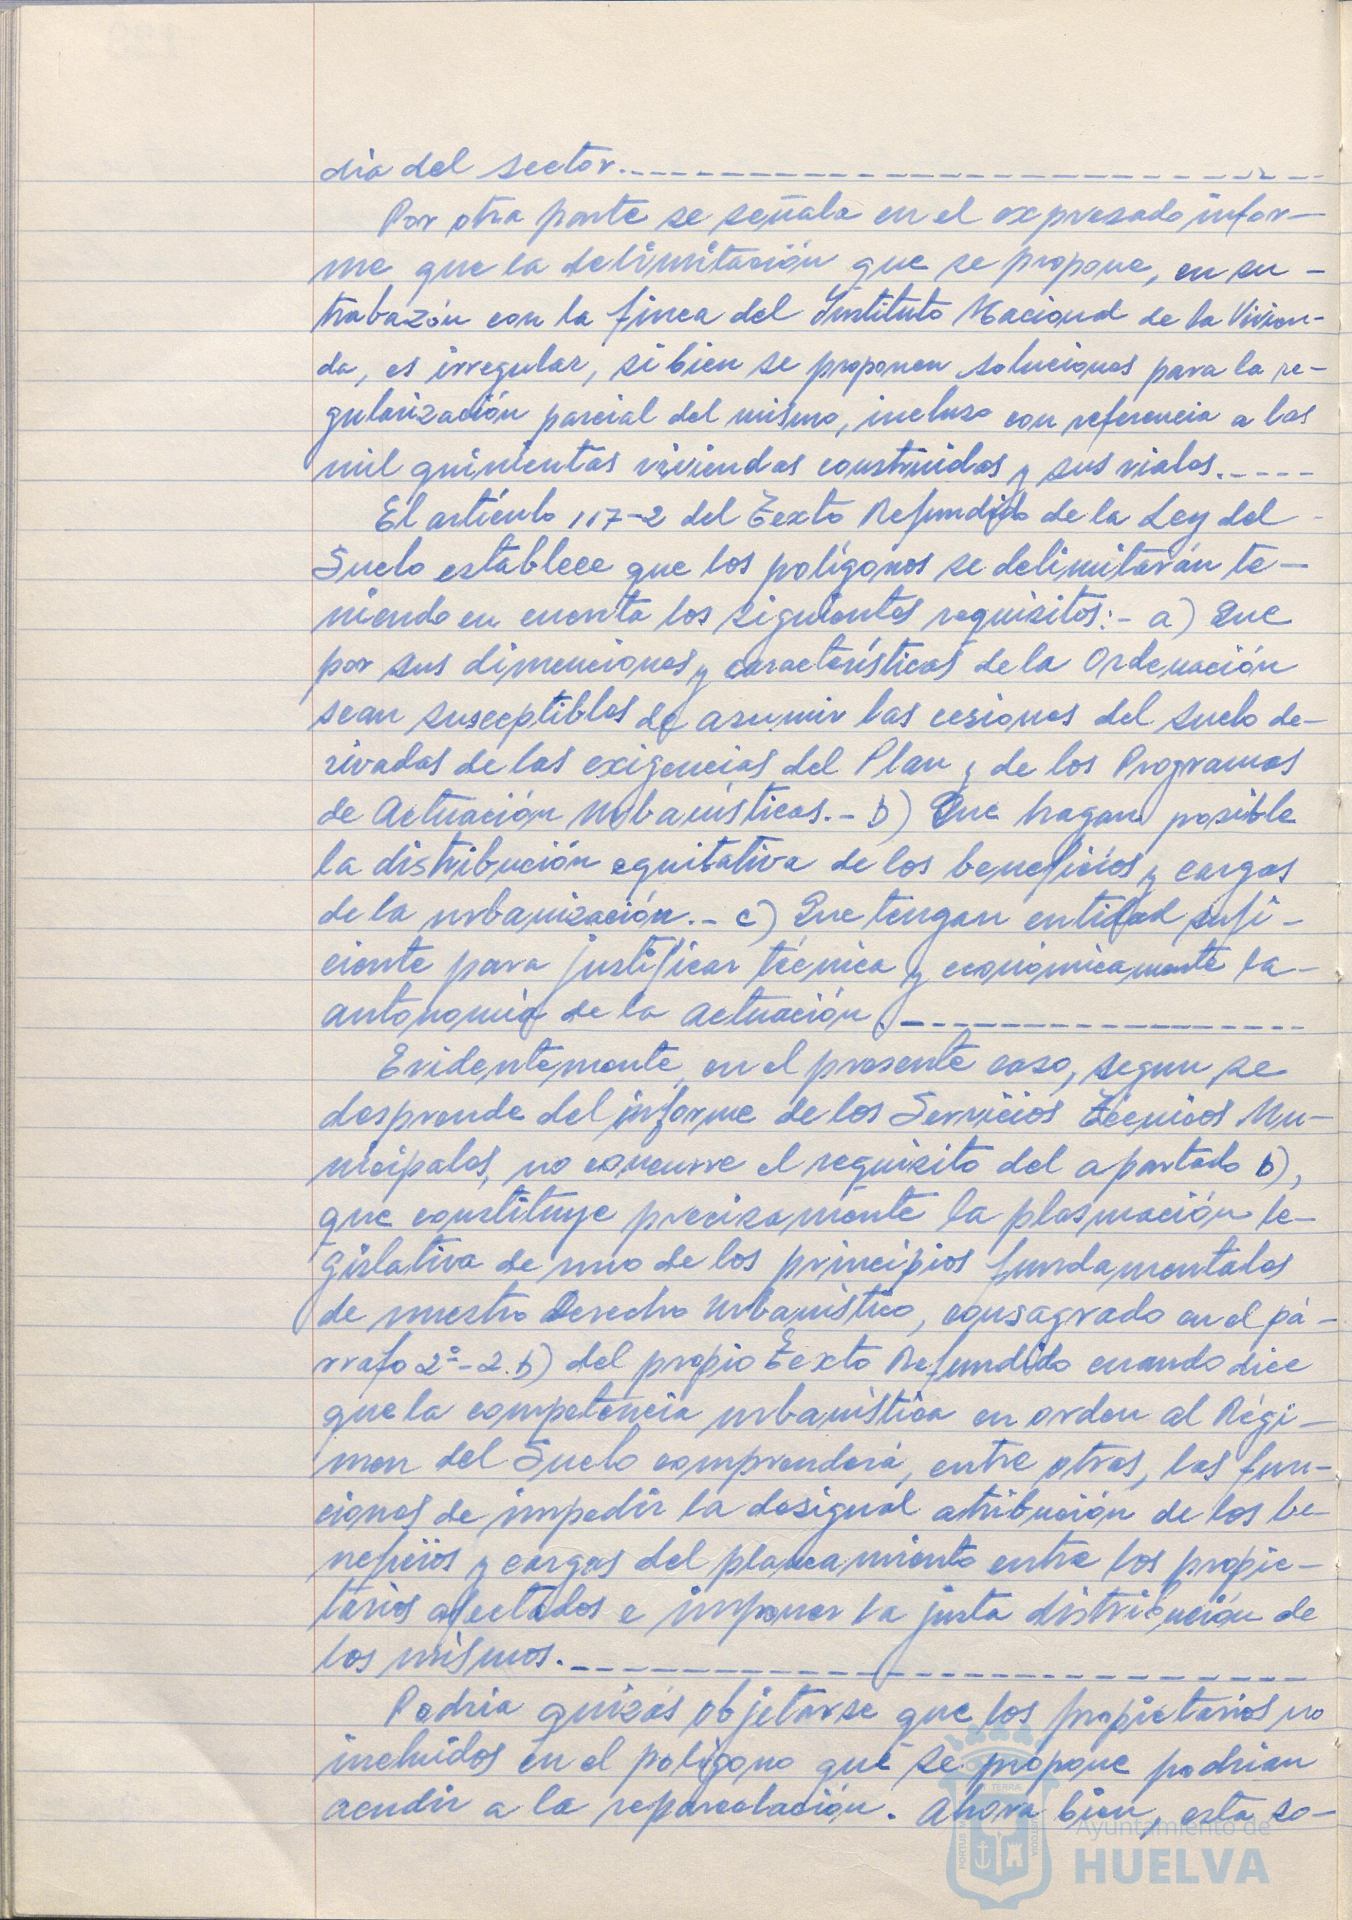 dia del sector.---------------------------
Por otra parte se señala en el expresado infor-
me que la delimitación que se propone, en su -
trabazón con la finca del Instituto Nacional de la Vivien-
da, es irregular, si bien se proponen soluciones para la re-
gularización parcial del mismo, incluso con referencia a las
mil quinientas viviendas construidas y sus viales.----
El artículo 117-2 del Texto Refundido de la Ley del -
Suelo establece que los polígonos se delimitarán te-
niendo en cuenta los siguientes requisitos:- a) Que
por sus dimenciones y características de la Ordenación
sean susceptibles de asumir las cesiones del suelo de-
rivadas de las exigencias del Plan y de los Programas
de Actuación Urbanísticas.- b) Que hagan posible
la distribución equitativa de los beneficios y cargas
de la urbanización.- c) Que tengan entidad sufi-
ciente para justificar técnica y económicamente la-
autonomía de la actuación.-----------------
Evidentemente, en el presente caso, segun se
desprende del informe de los Servicios Técnicos Mu-
nicipales, no concurre el requisito del apartado b),
que constituye precisamente la plasmación le-
gislativa de uno de los principios fundamentales
de nuestro Derecho Urbanístico, consagrado en el pá-
rrafo 2º-2.b) del propio Texto Refundido cuando dice
que la competencia urbanística en orden al Régi-
men del Suelo comprenderá, entre otras, las fun-
ciones de impedir la desigual atribución de los be-
neficios y cargas del planeamiento entre los propie-
tarios afectados e imponer la justa distribución de
los mismos.---------------------------
Podría quizás objetarse que los propietarios no
incluidos en el polígono que se propone podrian
acudir a la reparcelación. Ahora bien, esta so-
Ayuntamiento de
HUELVA